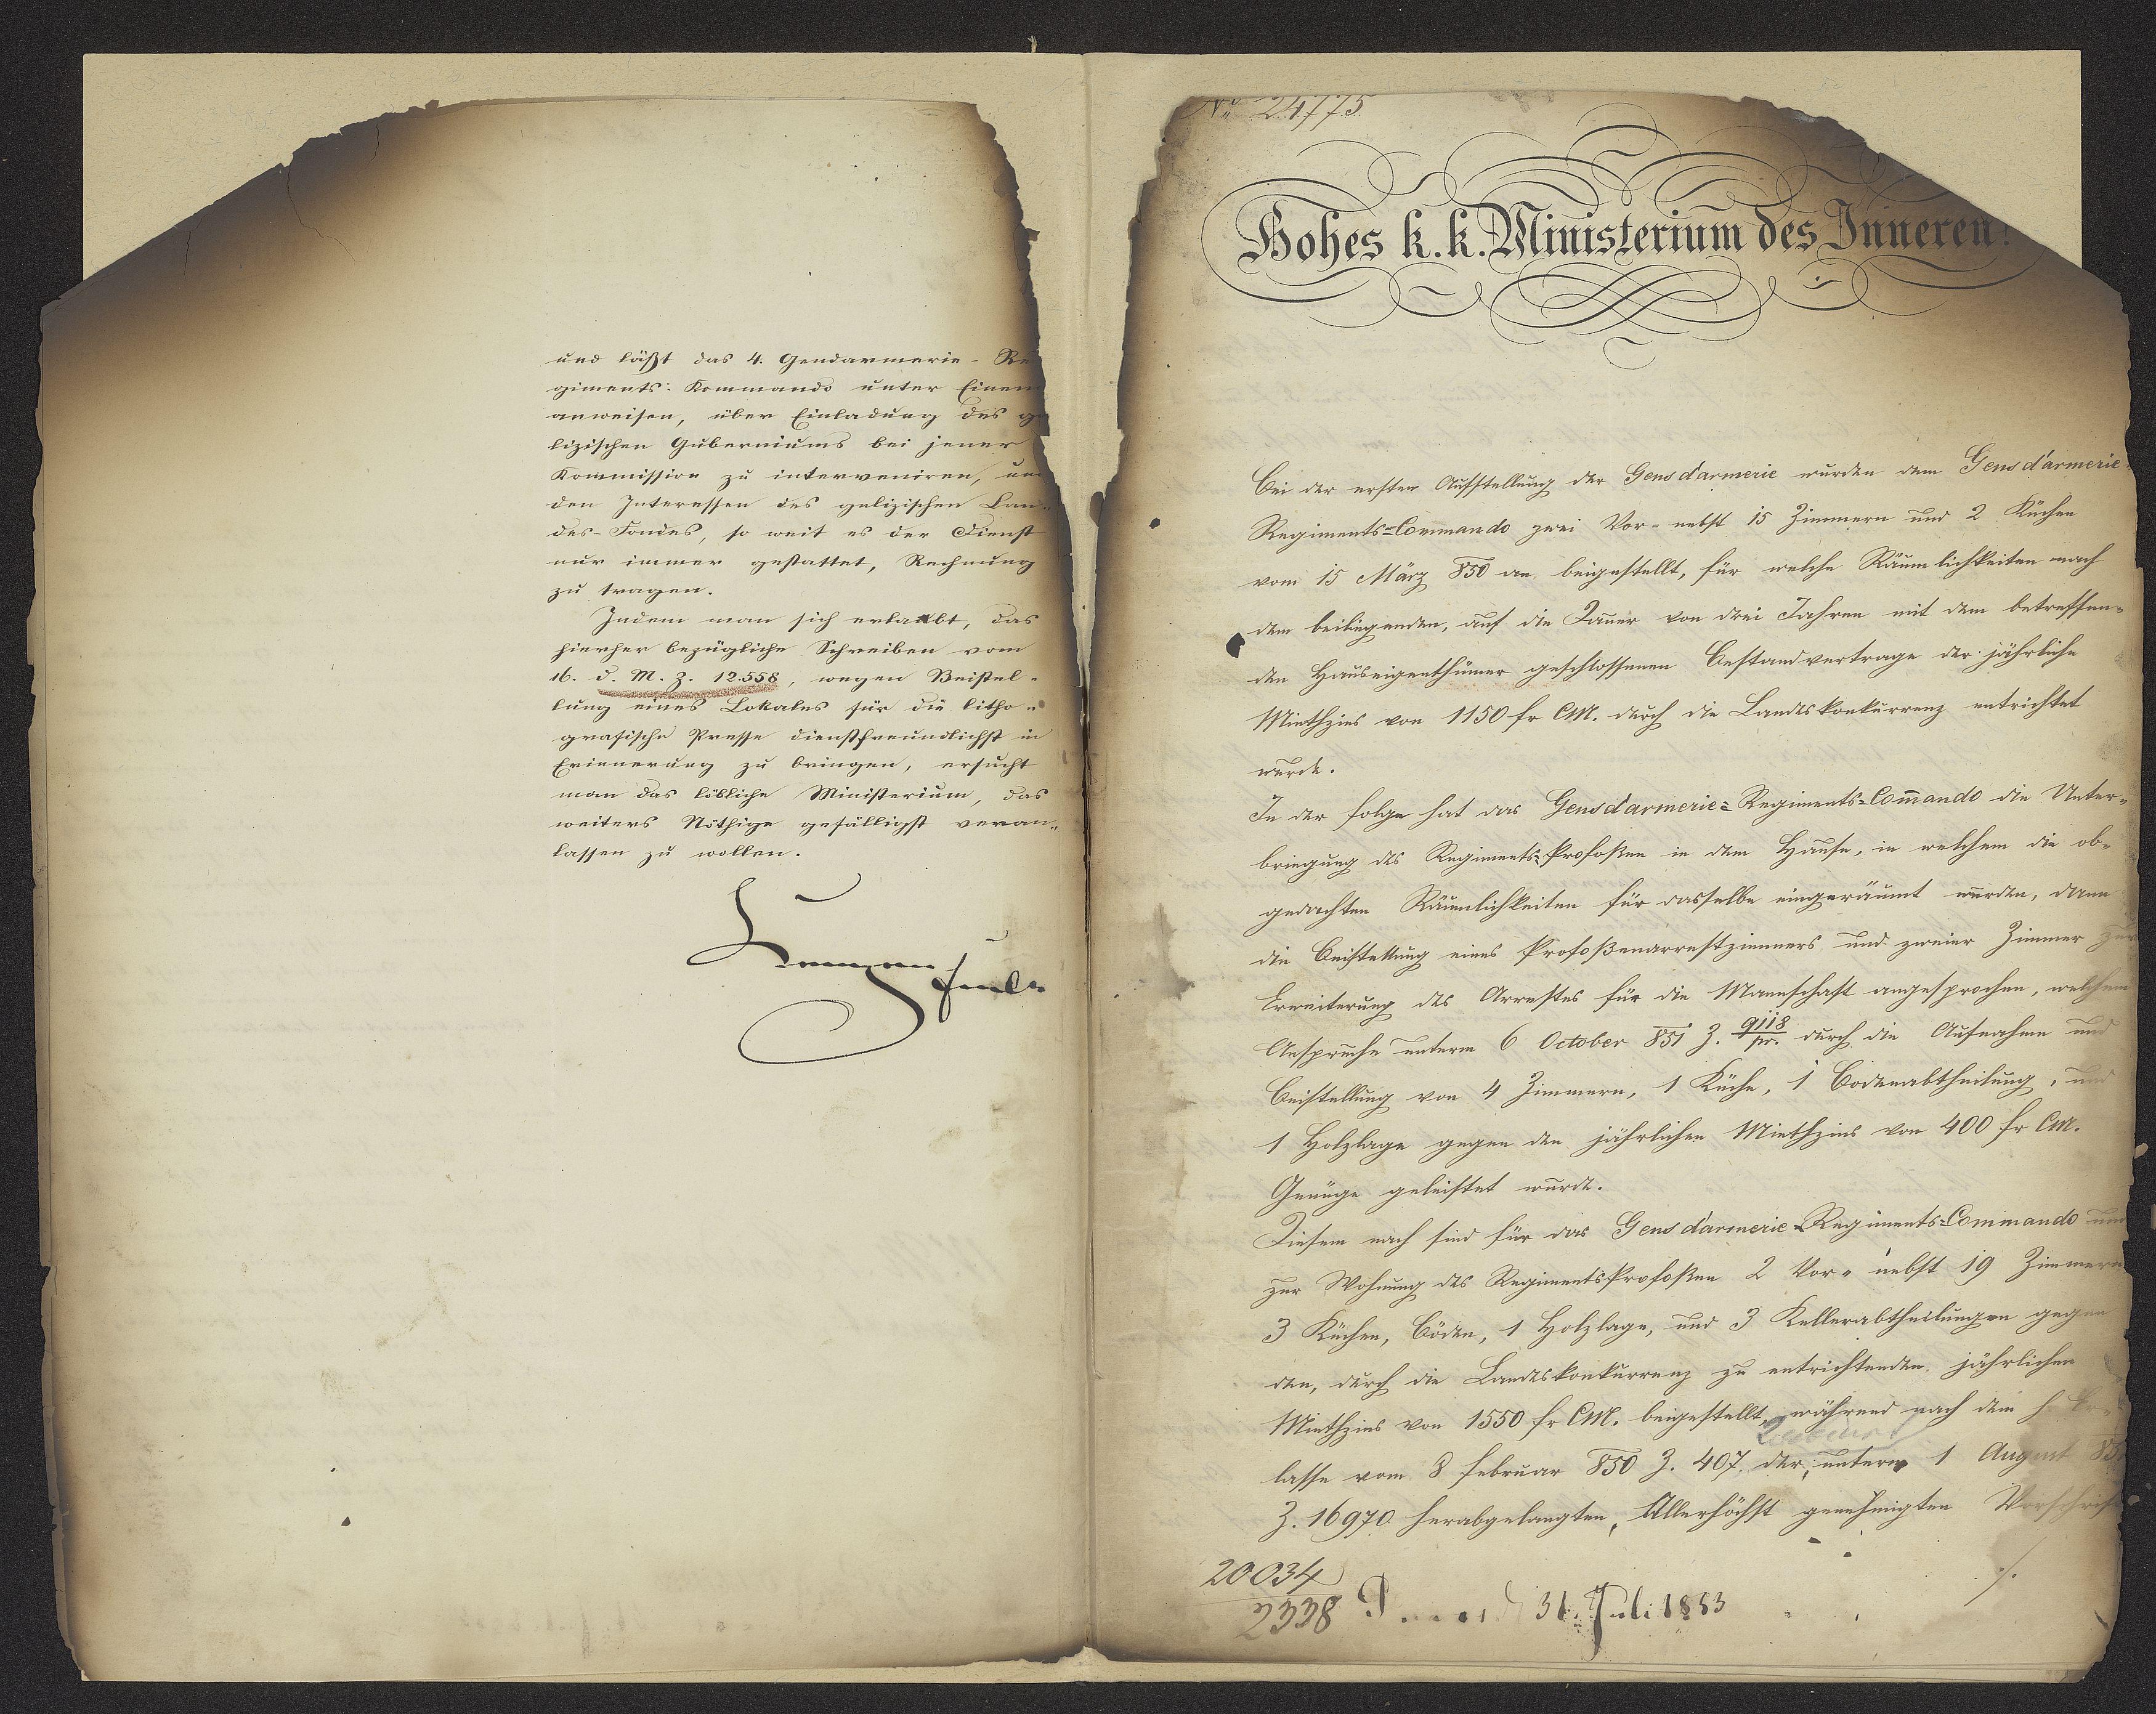 und läßt das 4. Gendarmerie-Re
giments-Kommando unter Einem
anweisen, über Einladung des ga
lizischen Guberniums bei jener
Kommission zu interveniren, um
den Interessen des galizischen Lan-
des-Fondes, so weit es der Dienst
nur immer gestattet, Rechnung
zu tragen.
Indem man sich erlaubt, das
hierher bezügliche Schreiben vom
16. d. M. Z. 12.558, wegen Beistel-
lung eines Lokales für die litho-
grafische Presse dienstfreundlichst in
Erinnerung zu bringen, ersucht
man das löbliche Ministerium, das
weiters Nöthige gefälligst veran-
lassen zu wollen.
No 24775
Hohes k. k. Ministerium des Inneren!
Bei der ersten Aufstellung der Gensd'armerie wurden dem Gensd'armerie-
Regiments-Commando zwei Vor- nebst 15 Zimmern und 2 Küchen
vom 15 März 850 an beigestellt, für welche Räumlichkeiten nach
dem beiliegenden, auf die Dauer von drei Jahren mit dem betreffen-
den Hauseigenthümer geschlossenen Bestandvertrage der jährliche
Miethzins von 1150 fr CM. durch die Landeskonkurrenz entrichtet
wurde.
In der Folge hat das Gensd'armerie-Regiments-Commando die Unter-
bringung des Regiments-Profoßen in dem Hause, in welchem die ob-
gedachten Räumlichkeiten für dasselbe eingeräumt wurden, dann
die Beistellung eines Profoßenarrestzimmers und zweier Zimmer zur
Erweiterung des Arrestes für die Mannschaft angesprochen, welchem
Anspruche unterm 6 October 851 Z. 9118/pr. durch die Aufnahme und
Beistellung von 4 Zimmern, 1 Küche, 1 Bodenabtheilung, und
1 Holzlage gegen den jährlichen Miethzins von 400 fr CM.
Genüge geleistet wurde.
Diesem nach sind für das Gensd'armerie-Regiments-Commando und
zur Wohnung des Regiments Profoßen 2 Vor- nebst 19 Zimmern
3 Küchen, Böden, 1 Holzlage, und 3 Kellerabtheilungen gegen
den, durch die Landeskonkurrenz zu entrichtenden jährlichen
Miethzins von 1550 fr CM. beigestellt, während nach dem h. Er-
lasse vom 8 Februar 850 Z. 407 der, unterm 1 August 85
Z. 16970 herabgelangten, Allerhöchst genehmigten Vorschrift
./.
20034
2338
31. Juli 1853